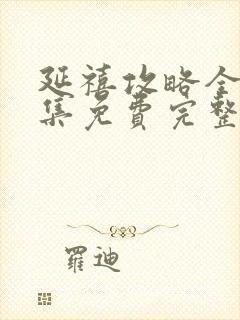 延禧攻略全
集免费完整
羅迪